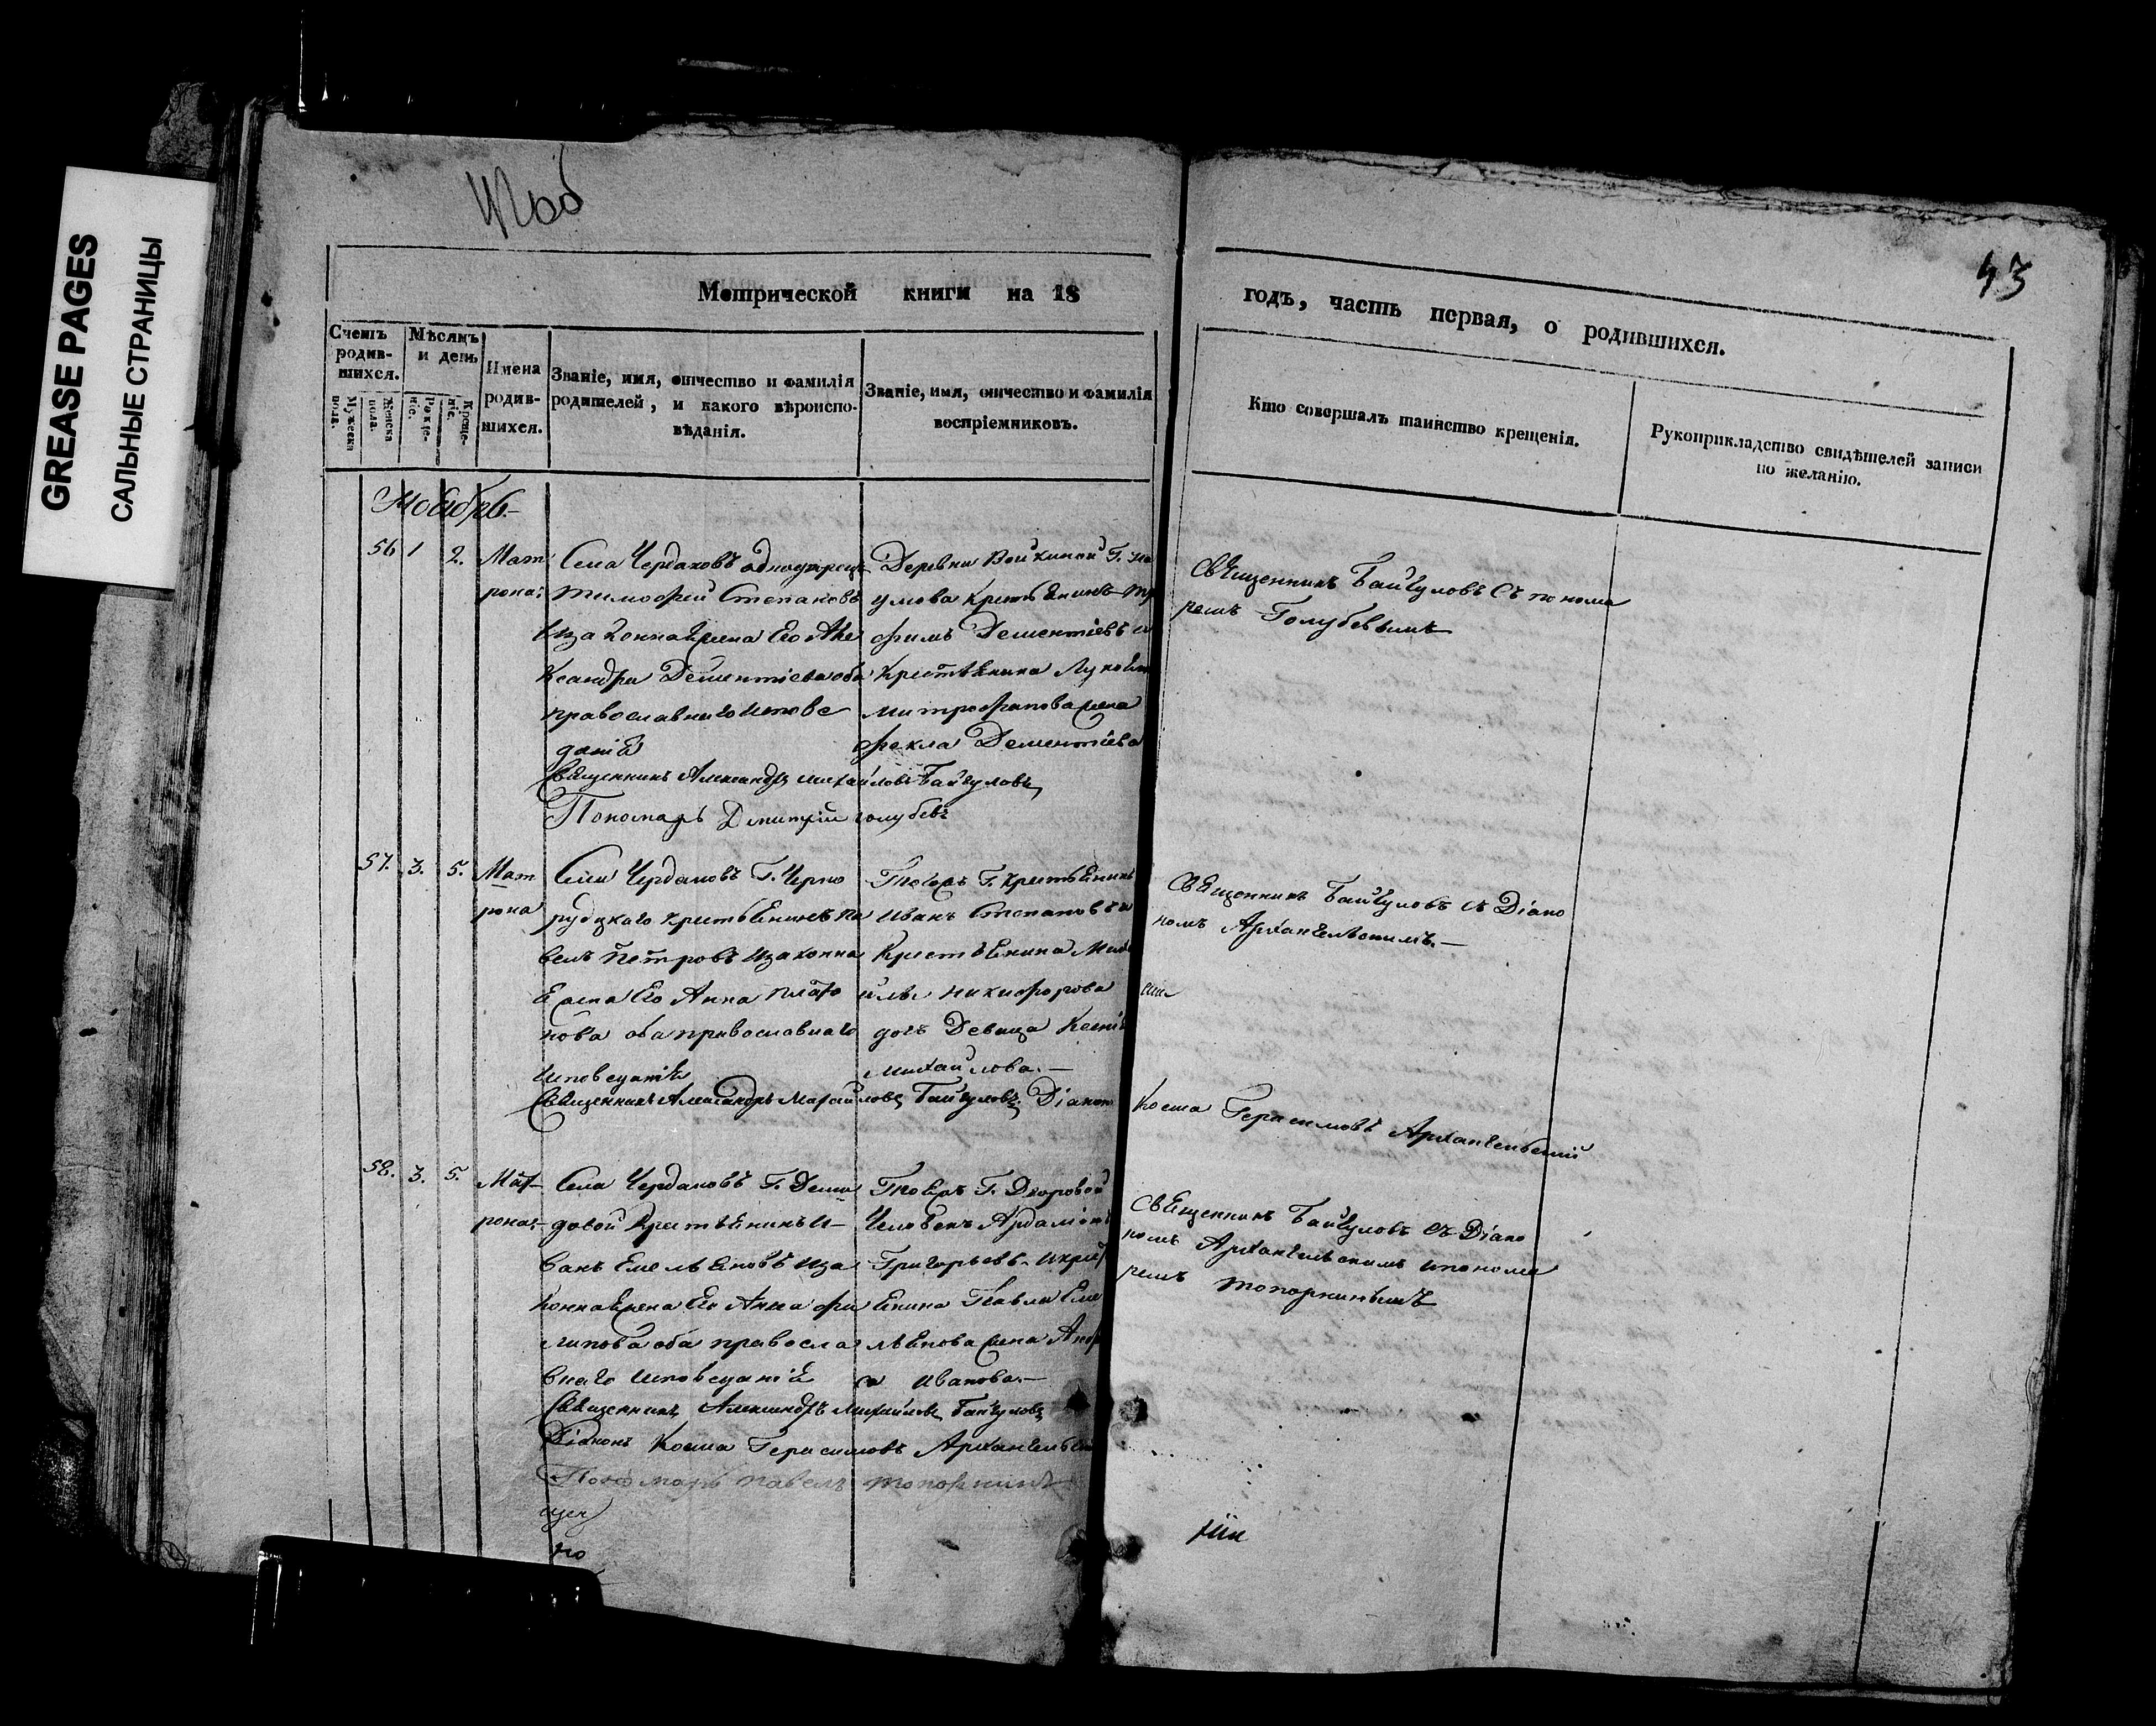 GREASE PAGES
САЛЬНЫЕ СТРАНИЦЫ
43
Метрической книги на 18 годъ, часть первая, о родившихся.
Счетъ родив-шихся.
Мужеска пола.
Женска пола.
Мѣсяцъ и день
Рожде-ніе.
Креще-ніе.
Имена родив-шихся.
Званіе, имя, отчество и фамилія
родителей, и какого вѣроиспо-
вѣданія.
Званіе, имя, отчество и фамилія
воспріемниковъ.
Кто совершалъ таинство крещенія.
Рукоприкладство свидѣтелей записи
по желанію.
Ноября.
56 1 2. Мат
рона:
Села Чердаковъ
Тимофей Степановъ
Изаконнаяжена Его Але
Ксандра Дементіева оба
православнаго испове
данія
Деревни Войкиной Г. На
умова Крестьянинъ
фимъ Дементіевъ и
Крестьянина
митрофанова жена
фекла Дементіева
Священникъ Байгуловъ Съ понома
ремъ Голубевымъ
Священникъ Александръ михайловъ Байгуловъ
Пономарь Дмитрий голубевъ
57. 3. 5. Мат
рона
Села Чердаковъ Г. Черно
рудскаго крестьянинъ Па
велъ Петровъ Изаконна
Яжена Его Анна Плато
нова оба православнаго
Исповеданія
Тогожъ Г. Крестьянинъ
Иванъ Степановъ и
Крестьянина Миха
йлы Никифорова
дочь Девица
михайлова.—
Священникъ Байгуловъ съ Діако
номъ Архангельскимъ.—
Священникъ Александръ Михайловъ Байгуловъ, Діаконъ Косма Герасимовъ Архангельский
58. 3. 5. Мат—
рона:
Села Чердаковъ Г. Деми
довой Крестьянинъ И—
ванъ Емельяновъ Иза
Коннаяжена Его Анна фи
липова оба правосла
внаго Исповеданія
Тогожъ Г. Дворовой
Человекъ Ардаліонъ
Григорьевъ. Икрест
янина Павла Еме
льянова жена
Иванова.—
Священникъ Байгуловъ съ Діако
номъ Архангельскимъ ипонома
ремъ Топорнинымъ
Священникъ Александръ Михайловъ Байгуловъ
Діаконъ Косма Герасимовъ Архангельский
Пономарь Павелъ Топорнинъ